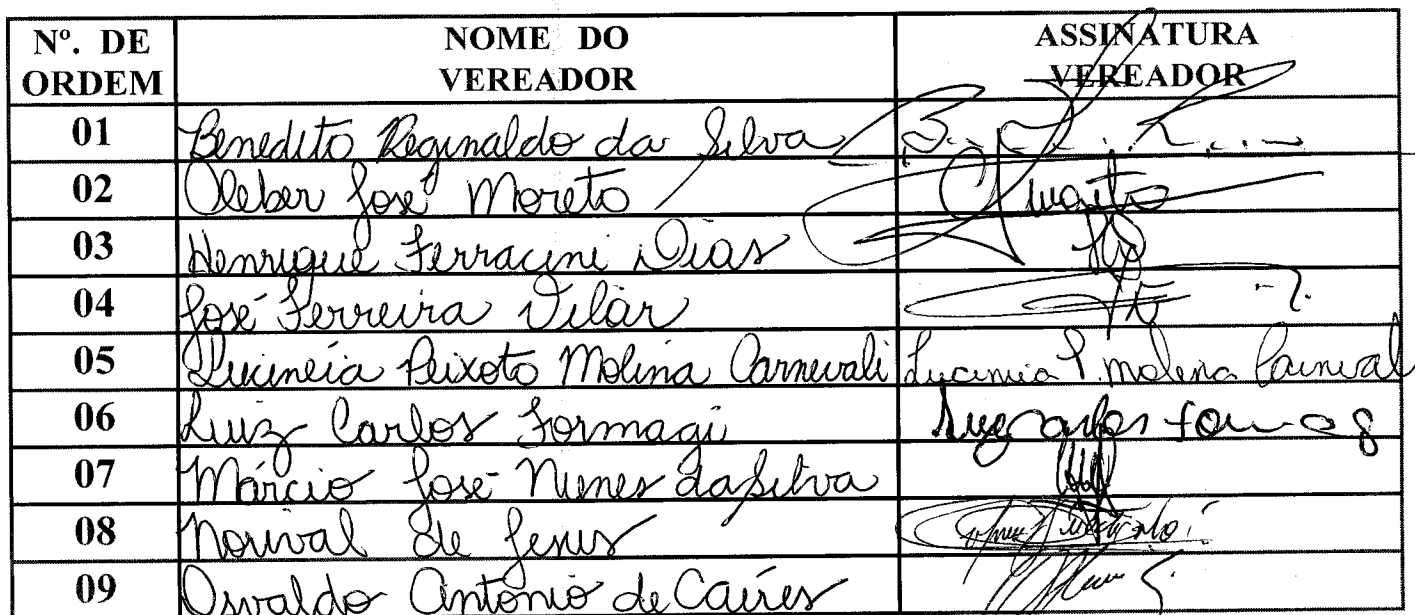 Nº. DE ORDEM NOME DO VEREADOR ASSINATURA VEREADOR
01 Benedito Reginaldo da Silva
02 Cleber José Moreto
03 Henrique Ferracini Dias
04 José Ferreira Vilar
05 Lucineia Peixoto Molina Carnevali Lucineia P. Molena Carneval
06 Luiz Carlos Formagi
07 Márcio José Nunes da Silva
08 Norival de Jesus
09 Osvaldo Antonio de Caíres